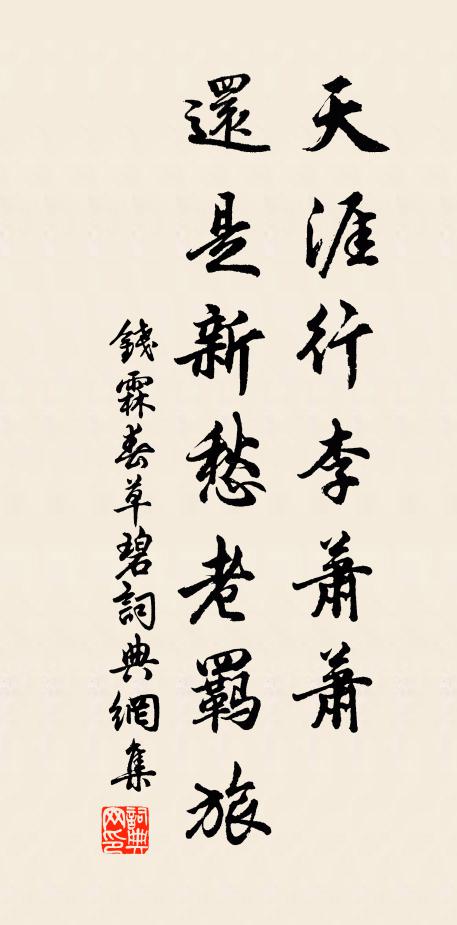 天涯行李蕭蕭
還是新愁老羈旅
錢霖春草碧詞典網集
詞典网印